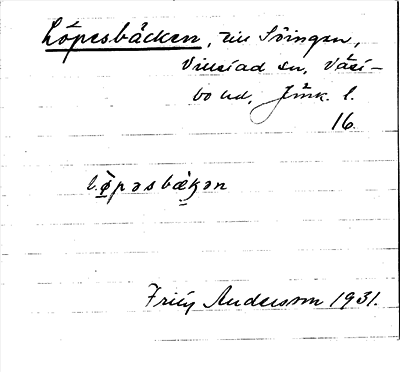 Löpesbäcken, till Söingen,
Villstad sn, Västbo hd, Jönk. l.
16.
l.ø̀pəsbæ̀kən
Fritz Andersson 1931.